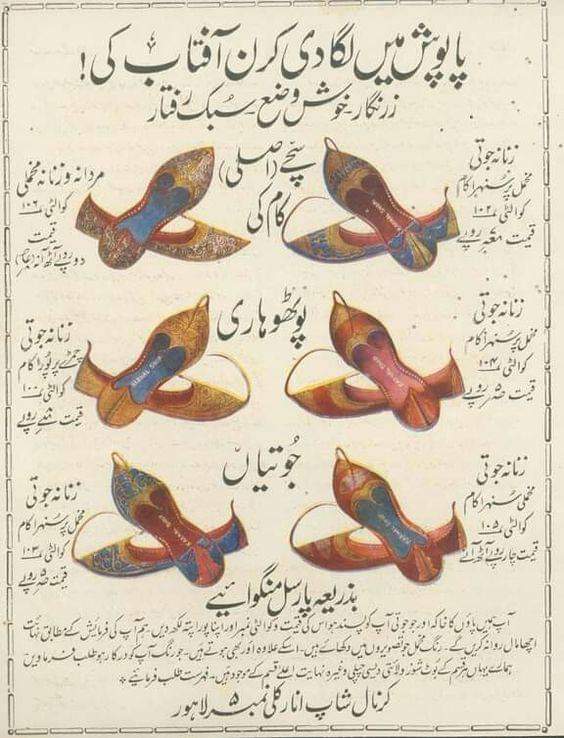 پاپوش میں لگا دی کرن آفتاب کی!
زرنگار۔ خوش وضع۔ سبک رفتار
سچے (اصلی)
کام کی
زنانہ جوتی
مخمل پر سنہرا کام
کوالٹی ۱۰۲
قیمت روپے
مردانہ و زنانہ مخملی
کوالٹی ۱۰۶
قیمت
دو روپے آٹھ آنہ
KARNAL SHOP
پوٹھوہاری
زنانہ جوتی
مخمل پر سنہرا کام
کوالٹی ۱۰۴
قیمت روپے
زنانہ جوتی
چمڑے پر پورا کام
کوالٹی ۱۰۰
قیمت روپے
KARNAL SHOP
KARNAL SHOP
جوتیاں
زنانہ جوتی
مخملی سنہرا کام
کوالٹی ۱۰۵
قیمت چار روپے آٹھ آنے
زنانہ جوتی
مخمل پر سنہرا کام
کوالٹی ۱۰۳
قیمت روپے
KARNAL SHOP
KARNAL SHOP
بذریعہ پارسل منگوائیے
آپ ہمیں پاؤں کا خاکہ اور جو جوتی آپ کو پسند ہو اس کی قیمت و کوالٹی نمبر اور اپنا پورا پتہ لکھ دیں۔ ہم آپ کی فرمایش کے مطابق نہایت
اچھا مال روانہ کریں گے۔ رنگ مخمل جو تصویروں میں دکھائے ہیں۔ اسکے علاوہ اور بھی ہوتے ہیں۔ جو رنگ آپ کو درکار ہو طلب فرماویں
ہمارے یہاں ہر قسم کے بوٹ شوز ولائتی دیسی چپلی وغیرہ نہایت اعلےٰ قسم کے موجود ہیں۔ فہرست طلب فرمایئے
کرنال شاپ انارکلی نمبر ۵ لاہور